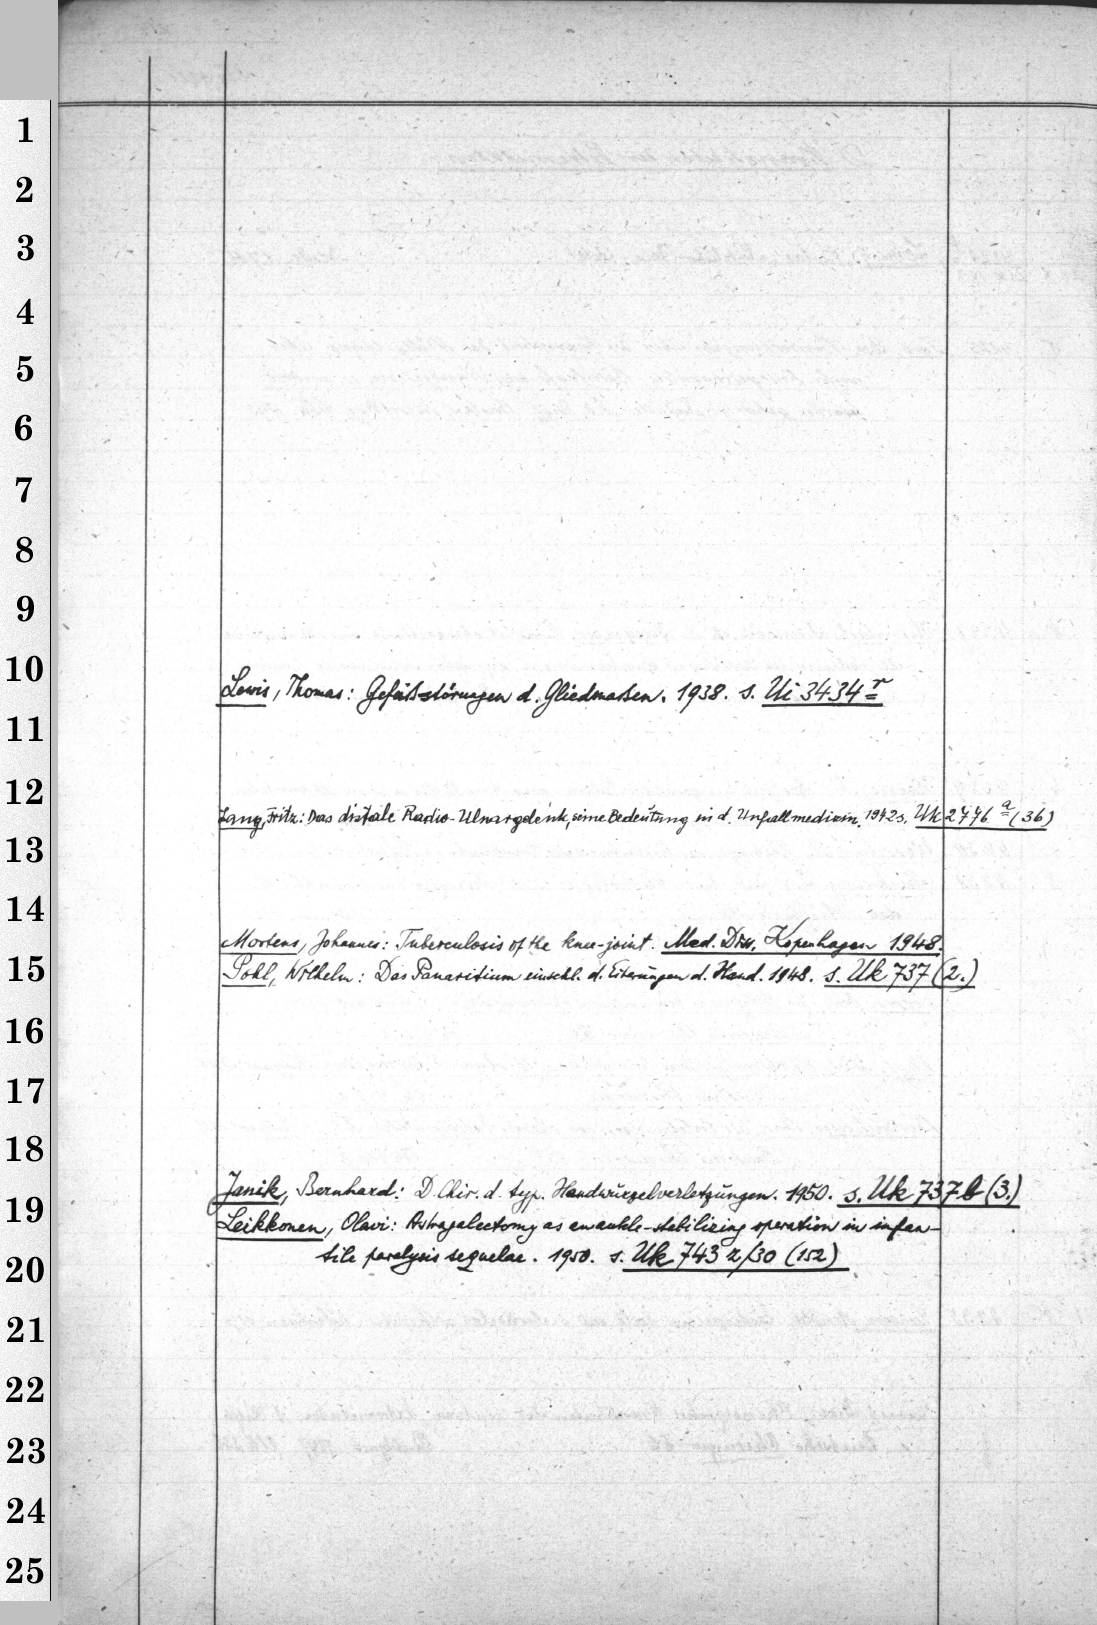 1
2
3
4
5
6
7
8
9
10
Lewis, Thomas: Gefäßstörungen d. Gliedmaßen. 1938. s. Ui 3434 r
11
12
Lang, Fritz: Das distale Radio-Ulnargelenk, seine Bedeutung in d. Unfallmedizin. 1942 s. Uk 2776 a (36)
13
14
Mortens, Johannes: Tuberculosis of the knee-joint. Med. Diss. Kopenhagen 1948.
15
Pohl, Wilhelm: Das Panaritium einschl. d. Eiterungen d. Hand. 1948. s. Uk 737 (2.)
16
17
18
Janik, Bernhard: D. Chir. d. typ. Handwurzelverletzungen. 1950. s. Uk 737 b (3.)
19
Leikkonen, Olavi: Astragalectomy as an ankle-stabilizing operation in infan-
tile paralysis sequelae. 1950. s. Uk 743 z/30 (152)
20
21
22
23
24
25